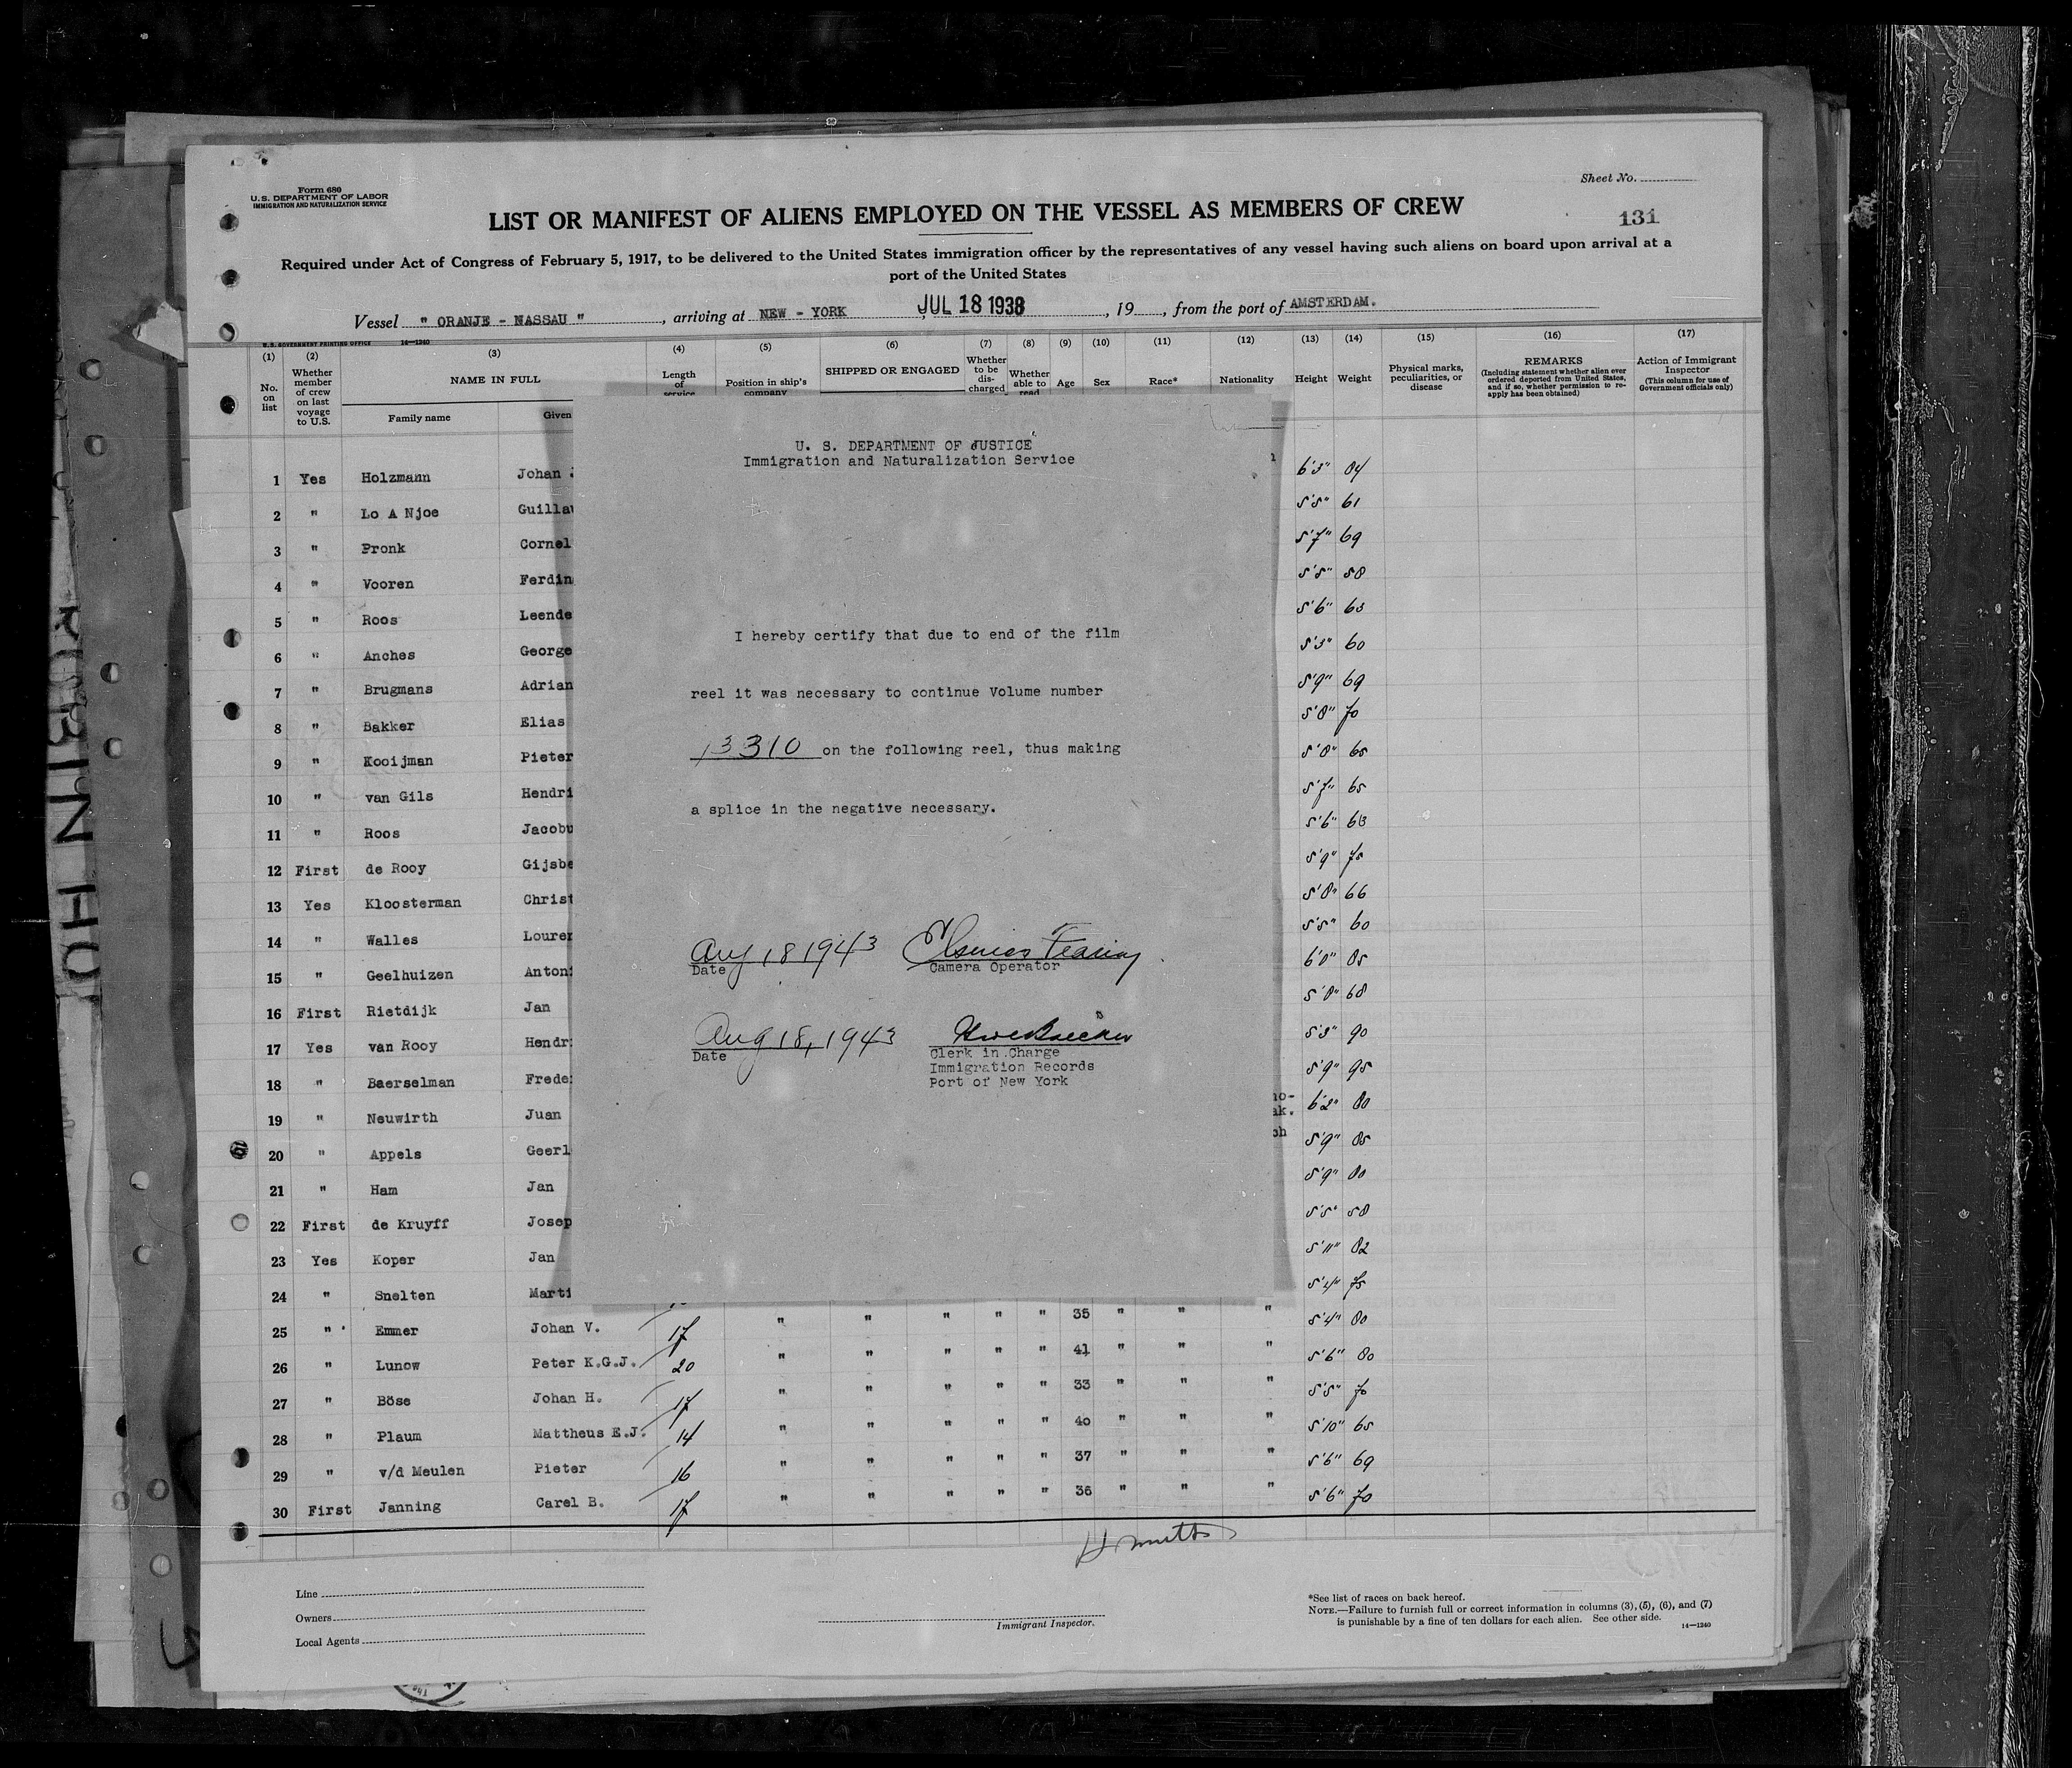 Form 680
U.S. DEPARTMENT OF LABOR
IMMIGRATION AND NATURALIZATION SERVICE
Sheet No.
LIST OR MANIFEST OF ALIENS EMPLOYED ON THE VESSEL AS MEMBERS OF CREW
131
Required under Act of Congress of February 5, 1917, to be delivered to the United States immigration officer by the representatives of any vessel having such aliens on board upon arrival at a
port of the United States
Vessel " ORANJE - NASSAU " , arriving at NEW - YORK JUL 18 1938 , 19 , from the port of AMSTERDAM.
U.S. GOVERNMENT PRINTING OFFICE 14—1240
(1) (2) (3) (4) (5) (6) (7) (8) (9) (10) (11) (12) (13) (14) (15) (16) (17)
No. on list
Whether member of crew on last voyage to U.S.
NAME IN FULL
Family name
Given
Length of service
Position in ship's company
SHIPPED OR ENGAGED
Whether to be discharged
Whether able to read
Age
Sex
Race*
Nationality
Height
Weight
Physical marks, peculiarities, or disease
REMARKS
(Including statement whether alien ever ordered deported from United States, and if so, whether permission to reapply has been obtained)
Action of Immigrant Inspector
(This column for use of Government officials only)
1 Yes Holzmann Johan J 6'3" 84
2 " Lo A Njoe Guillau 5'5" 61
3 " Pronk Cornel 5'7" 69
4 " Vooren Ferdin 5'5" 58
5 " Roos Leende 5'6" 63
6 " Anches George 5'3" 60
7 " Brugmans Adrian 5'9" 69
8 " Bakker Elias 5'8" 70
9 " Kooijman Pieter 5'8" 65
10 " van Gils Hendri 5'7" 65
11 " Roos Jacobu 5'6" 63
12 First de Rooy Gijsbe 5'9" 75
13 Yes Kloosterman Christ 5'8" 66
14 " Walles Louren 5'5" 60
15 " Geelhuizen Antoni 6'0" 85
16 First Rietdijk Jan 5'8" 68
17 Yes van Rooy Hendr 5'3" 90
18 " Baerselman Freder 5'9" 95
19 " Neuwirth Juan 6'2" 80
20 " Appels Geerl 5'9" 85
21 " Ham Jan 5'9" 80
22 First de Kruyff Josep 5'5" 58
23 Yes Koper Jan 5'11" 82
24 " Snelten Marti 5'4" 75
25 " Emmer Johan V. 17 " " " " " 35 " " " 5'4" 80
26 " Lunow Peter K.G.J. 20 " " " " " 41 " " " 5'6" 80
27 " Böse Johan H. 17 " " " " " 33 " " " 5'5" 70
28 " Plaum Mattheus E.J. 14 " " " " " 40 " " " 5'10" 65
29 " v/d Meulen Pieter 16 " " " " " 37 " " " 5'6" 69
30 First Janning Carel B. 17 " " " " " 36 " " " 5'6" 70
U. S. DEPARTMENT OF JUSTICE
Immigration and Naturalization Service
I hereby certify that due to end of the film
reel it was necessary to continue Volume number
13310 on the following reel, thus making
a splice in the negative necessary.
Aug 18 1943
Date Camera Operator
Aug 18, 1943
Date Clerk in Charge
Immigration Records
Port of New York
Line
Owners
Local Agents
Immigrant Inspector.
*See list of races on back hereof.
NOTE.—Failure to furnish full or correct information in columns (3), (5), (6), and (7)
is punishable by a fine of ten dollars for each alien. See other side.
14—1240
ROBIN HO